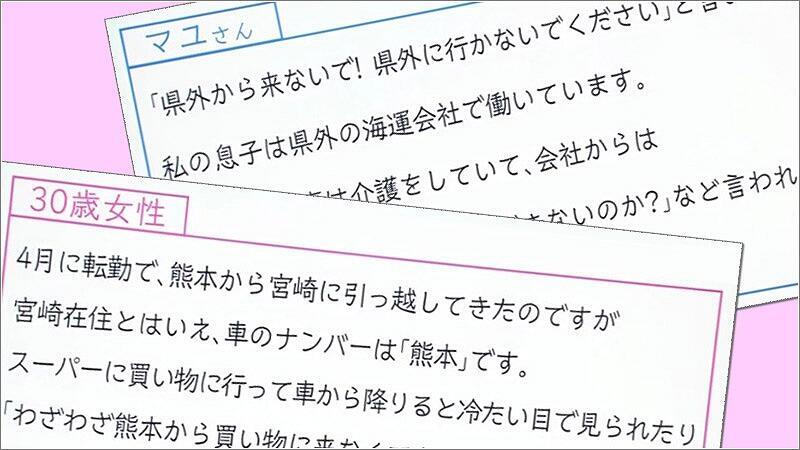 マユさん
「県外から来ないで! 県外に行かないでください」と言
私の息子は県外の海運会社で働いています。
は介護をしていて、会社からは
ないのか?」など言われ
30歳女性
4月に転勤で、熊本から宮崎に引っ越してきたのですが
宮崎在住とはいえ、車のナンバーは「熊本」です。
スーパーに買い物に行って車から降りると冷たい目で見られたり
「わざわざ熊本から買い物に来なく